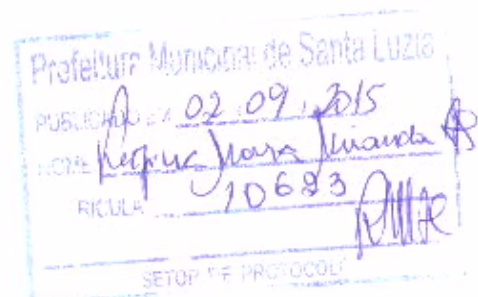 Prefeitura Municipal de Santa Luzia
PUBLICADO EM 02 09 2015
NOME Miranda
RICULA 10623
SETOR DE PROTOCOLO